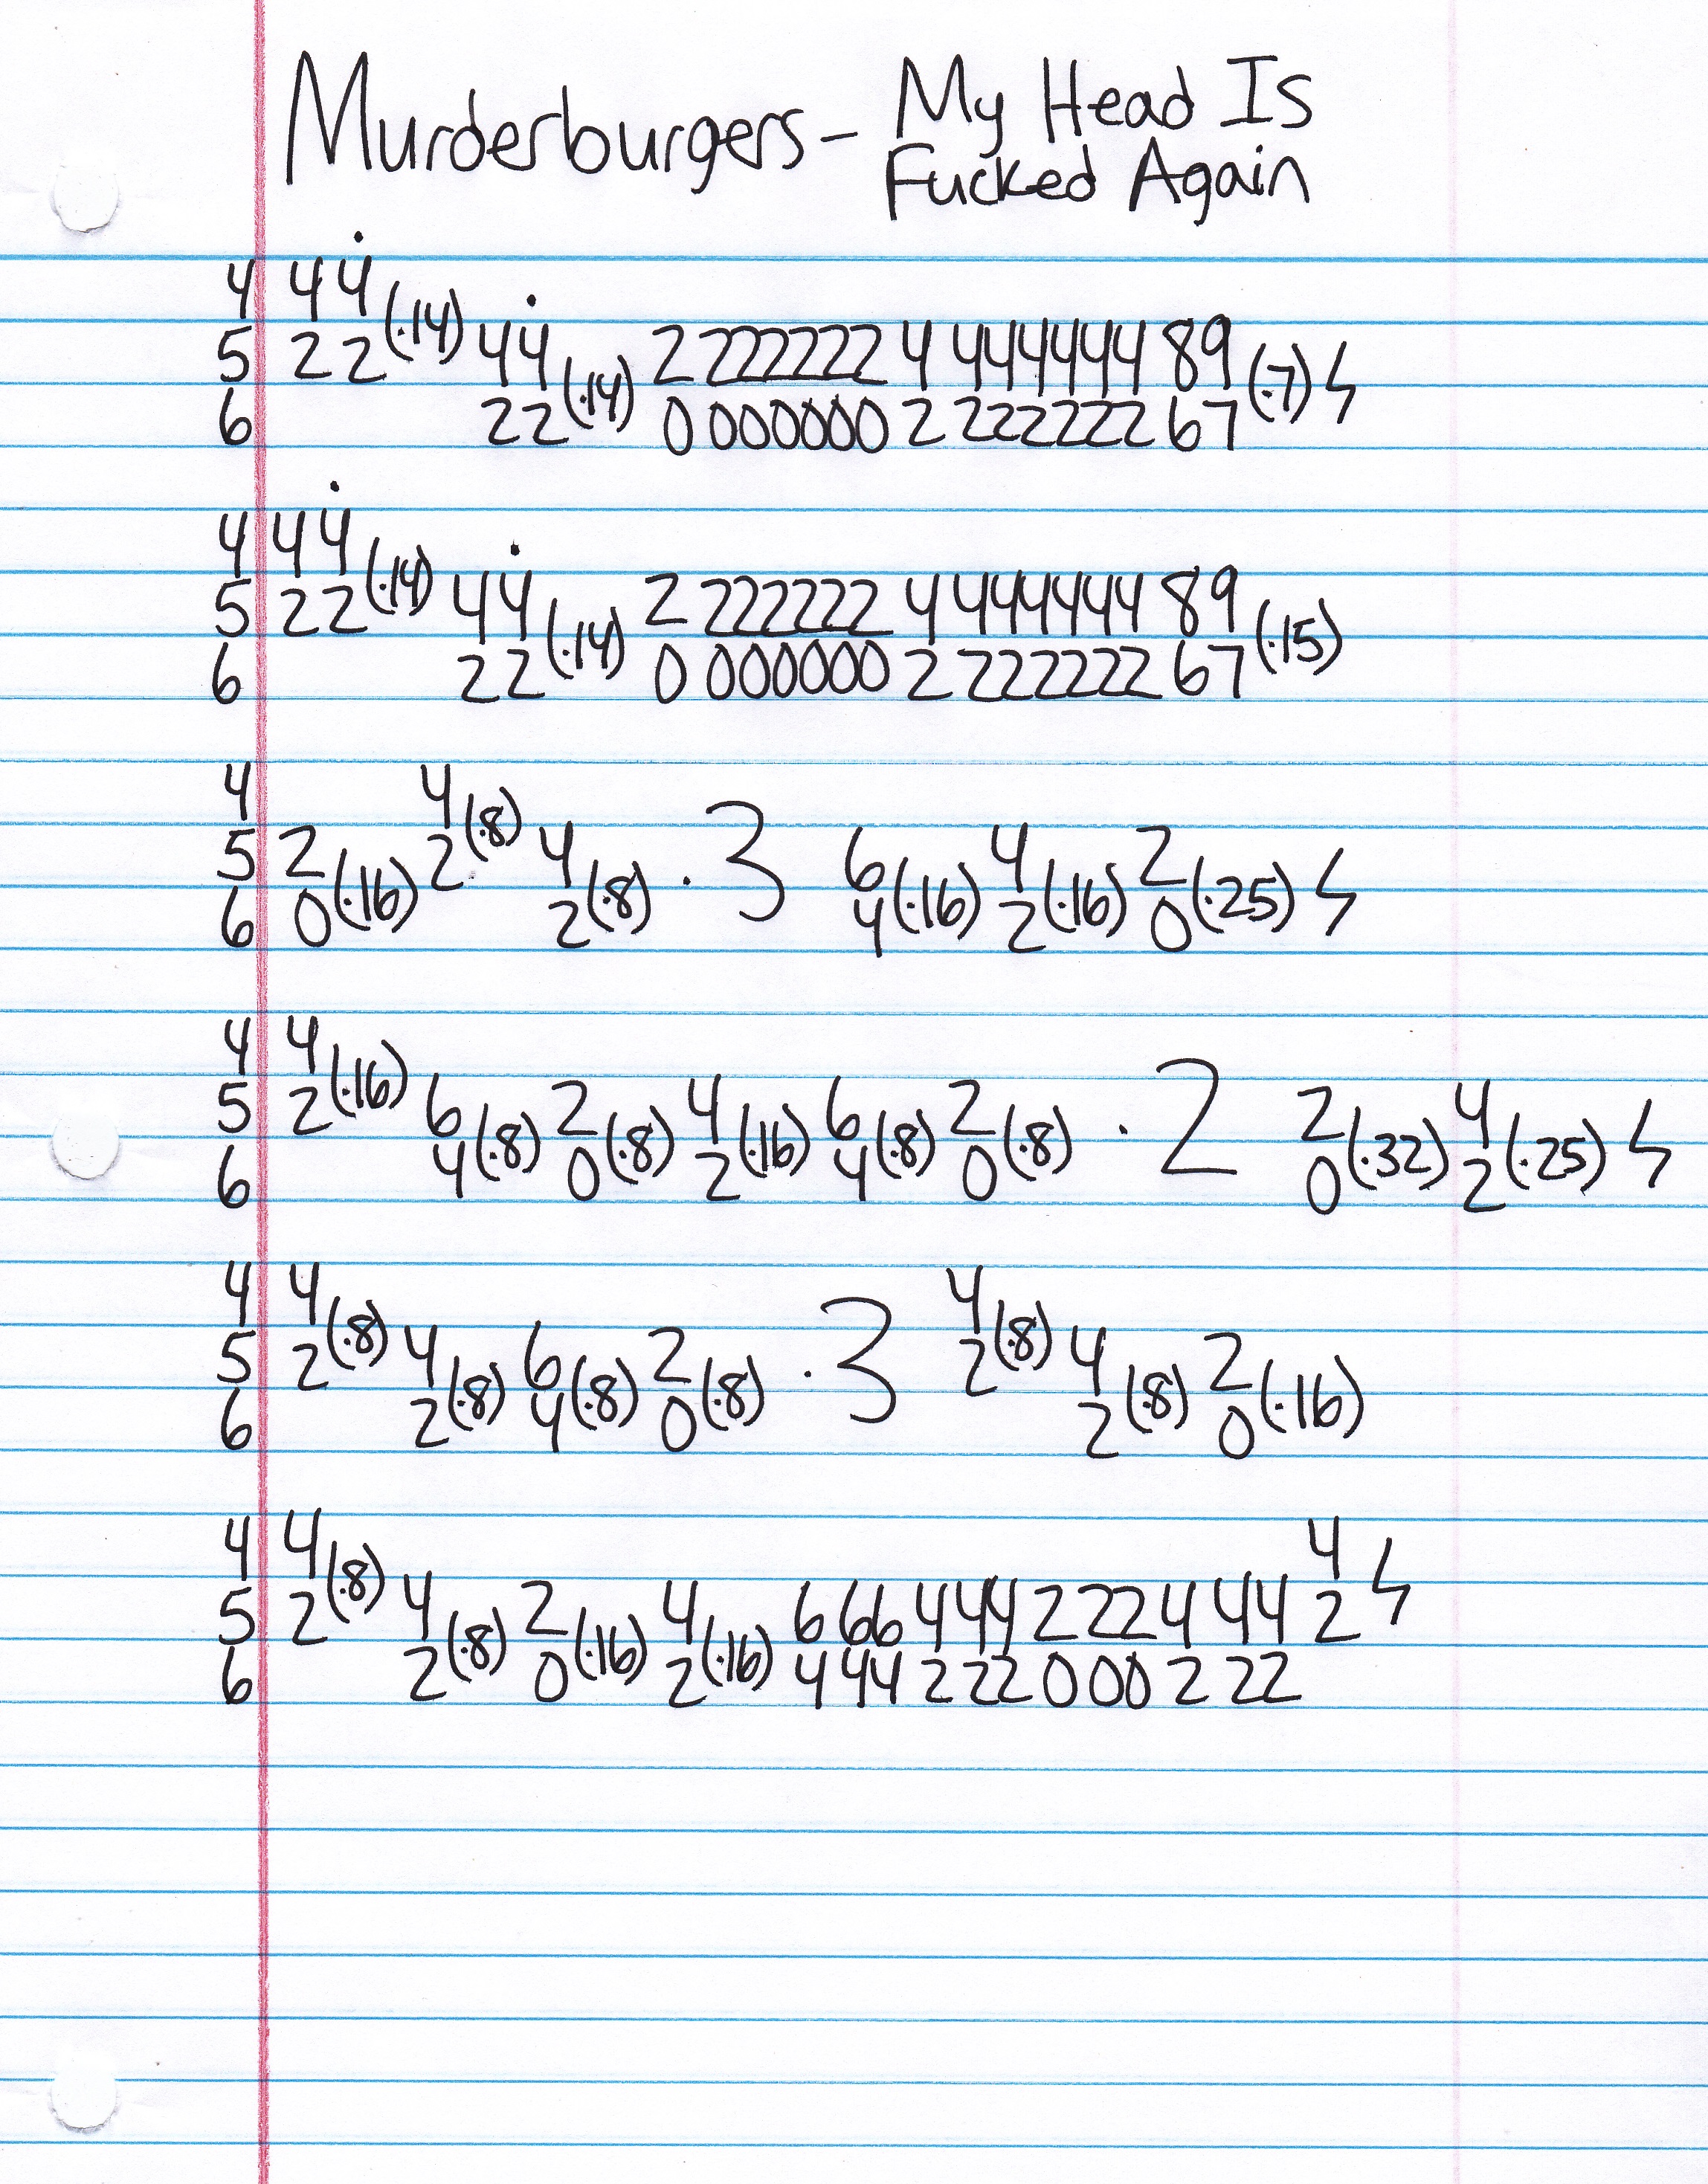 Murderburgers - My Head Is
Fucked Again
4 44
5 22 (·14) 44 2 222222 4 444444 89 (·7) ϟ
6 22 (·14) 0 000000 2 222222 67
4 44
5 22 (·14) 44 2 222222 4 444444 89 (·15)
6 22 (·14) 0 000000 2 222222 67
4 4
5 2 2 (·8) 4 · 3 6 4 2 ϟ
6 0 (·16) 2 (·8) 4 (·16) 2 (·16) 0 (·25)
4 4
5 2 (·16) 6 2 4 6 2 · 2 2 4 ϟ
6 4 (·8) 0 (·8) 2 (·16) 4 (·8) 0 (·8) 0 (·32) 2 (·25)
4 4 4
5 2 (·8) 4 6 2 · 3 2 (·8) 4 2
6 2 (·8) 4 (·8) 0 (·8) 2 (·8) 0 (·16)
4 4 4
5 2 (·8) 4 2 4 6 66 4 44 2 22 4 44 2 ϟ
6 2 (·8) 0 (·16) 2 (·16) 4 44 2 22 0 00 2 22